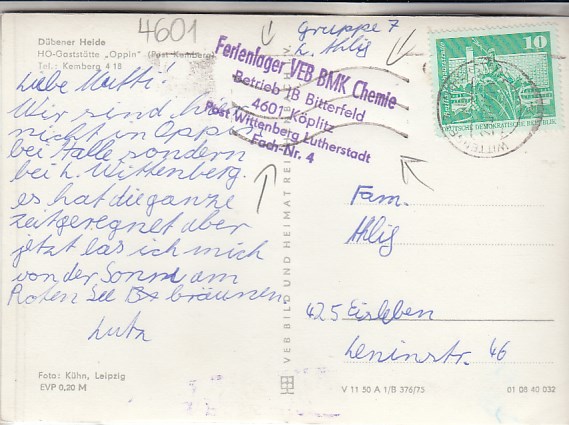 4601
Dübener Heide
HO-Gaststätte „Oppin" (Post Kemberg)
Tel.: Kemberg 4 18
Gruppe 7
L. Ahlig
Ferienlager VEB BMK Chemie
Betrieb IB Bitterfeld
4601 Köplitz
Post Wittenberg Lutherstadt
Fach-Nr. 4
10
DEUTSCHE DEMOKRATISCHE REPUBLIK
WITTEN
Liebe Mutti!
Wir sind hier
nicht in Oppin
bei Halle sondern
bei L. Wittenberg.
es hat die ganze
zeit geregnet aber
jetzt las ich mich
von der Sonne am
Roten See bräunen.
Lutz
Fam.
Ahlig
425 Eisleben
Leninstr. 46
VEB BILD UND HEIMAT REI
Foto: Kühn, Leipzig
EVP 0,20 M
V 11 50 A 1/B 376/73
01 08 40 032